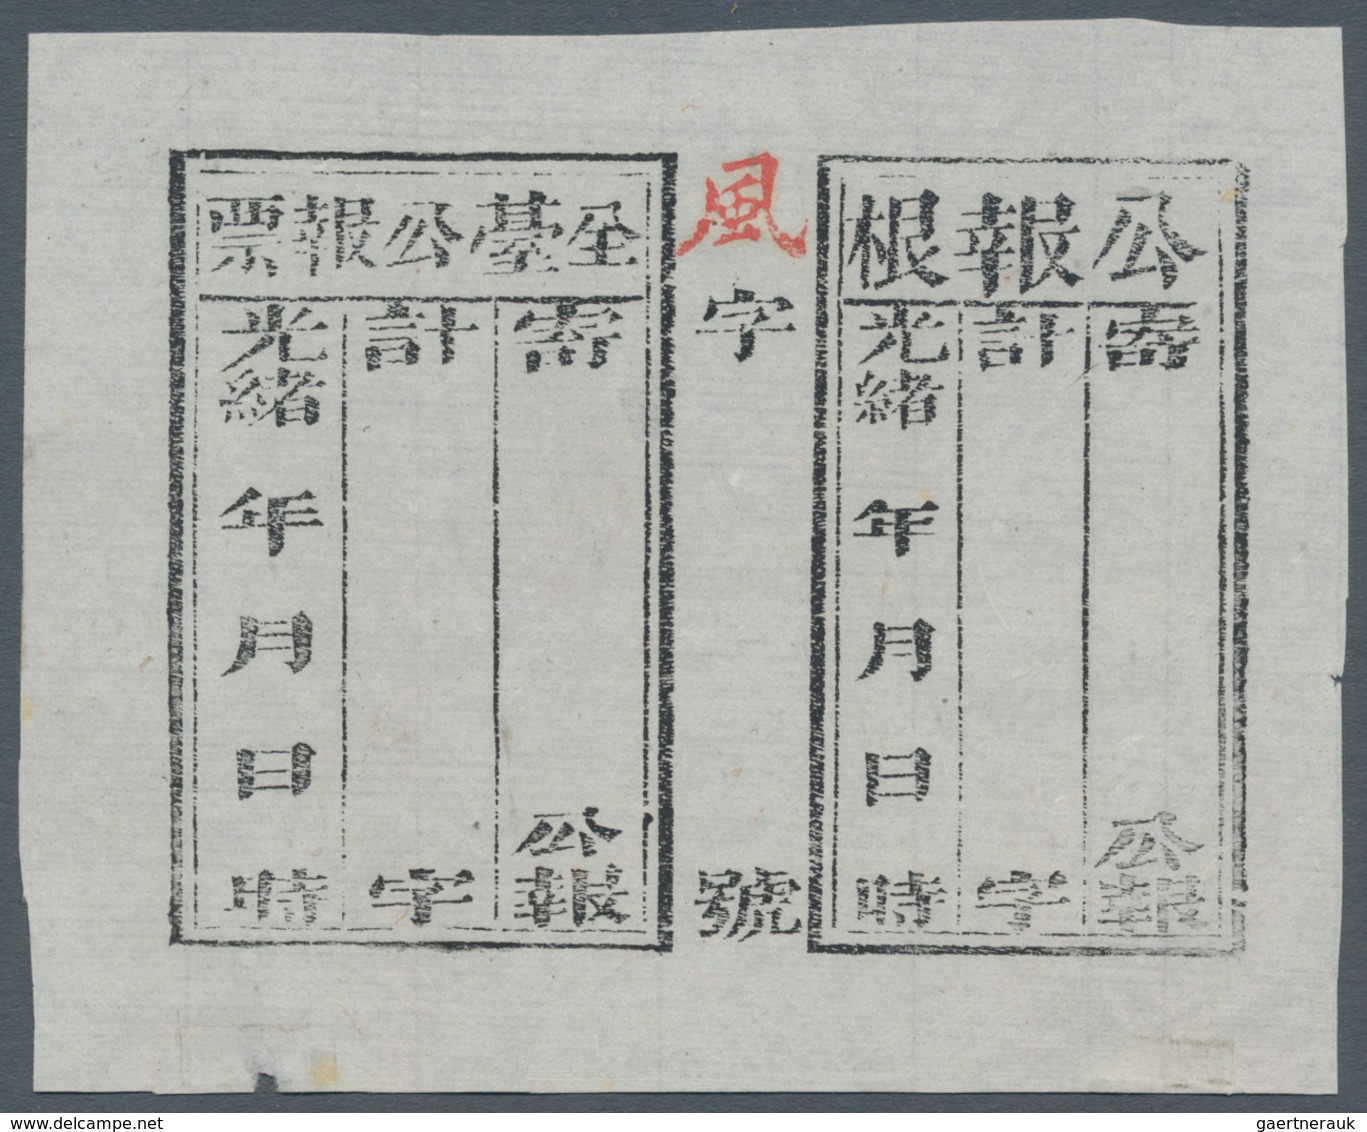 公報根
寄 公報
計 字
光緒 年 月 日 時
風字 號
全臺公報票
寄 公報
計 字
光緒 年 月 日 時
gaertnerauk